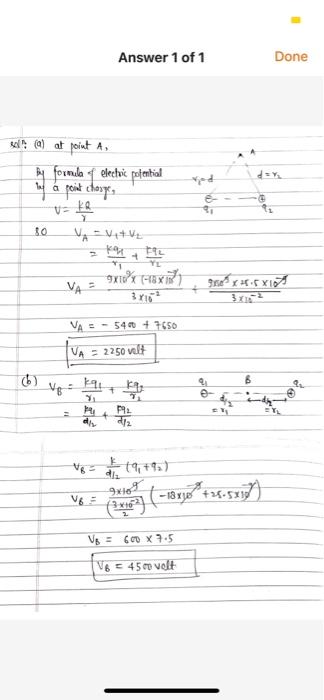 Answer 1 of 1
Done
solⁿ: (a) at point A,
By formula of electric potential
by a point charge,
V = kQ/r
r₁=d
d=r₂
A
q₁
q₂
so V_A = V₁+V₂
= kq₁/r₁ + kq₂/r₂
V_A = 9×10⁹×(-18×10⁻⁹)/3×10⁻² + 9×10⁹×25.5×10⁻⁹/3×10⁻²
V_A = - 5400 + 7650
V_A = 2250 volt
(b) V_B = kq₁/r₁ + kq₂/r₂
q₁ B q₂
d/₂ d/₂
= r₁ = r₂
= kq₁/d/₂ + kq₂/d/₂
V_B = k/d/₂ (q₁+q₂)
V_B = 9×10⁹/(3×10⁻²/2) (-18×10⁻⁹+25.5×10⁻⁹)
V_B = 600 × 7.5
V_B = 4500 volt